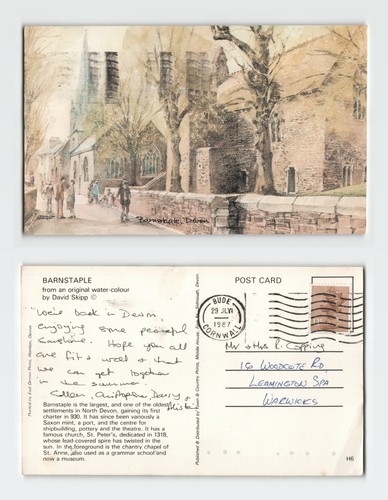 Barnstaple, Devon
BARNSTAPLE
from an original water-colour
by David Skipp ©
We're back in Devon,
enjoying some peaceful
sunshine. Hope you all
are fit & well & that
we can get together
in the summer.
Christopher,
Barnstaple is the largest, and one of the oldest
settlements in North Devon, gaining its first
charter in 930. It has since been variously a
Saxon mint, a port, and the centre for
shipbuilding, pottery and theatre. It has a
famous church, St. Peter's, dedicated in 1318,
whose lead-covered spire has twisted in the
sun. In the foreground is the chantry chapel of
St. Anne, also used as a grammar school and
now a museum.
POST CARD
BUDE
29 JLY
1987
CORNWALL
Mr & Mrs R. Copping
WOODCOTE RD,
LEAMINGTON SPA
WARWICKS
H6